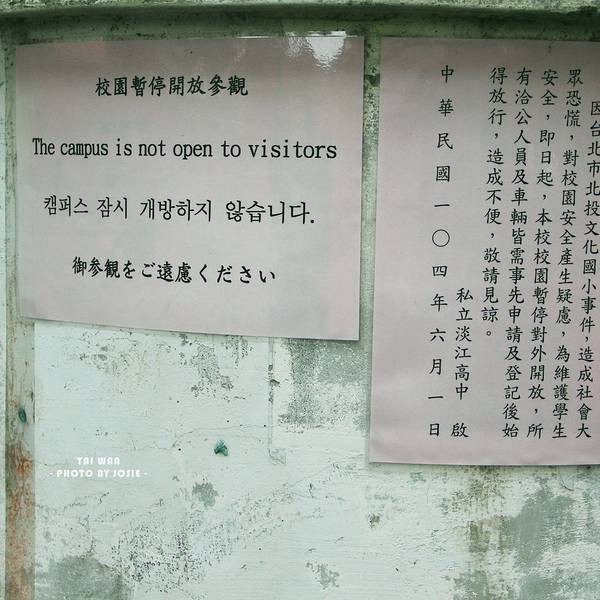 校園暫停開放參觀
The campus is not open to visitors
캠퍼스 잠시 개방하지 않습니다.
御参観をご遠慮ください
因台北市北投文化國小事件，造成社會大
眾恐慌，對校園安全產生疑慮，為維護學生
安全，即日起，本校校園暫停對外開放，所
有洽公人員及車輛皆需事先申請及登記後始
得放行，造成不便，敬請見諒。
私立淡江高中 啟
中華民國一〇四年六月一日
TAI WAN
- PHOTO BY JOSIE -